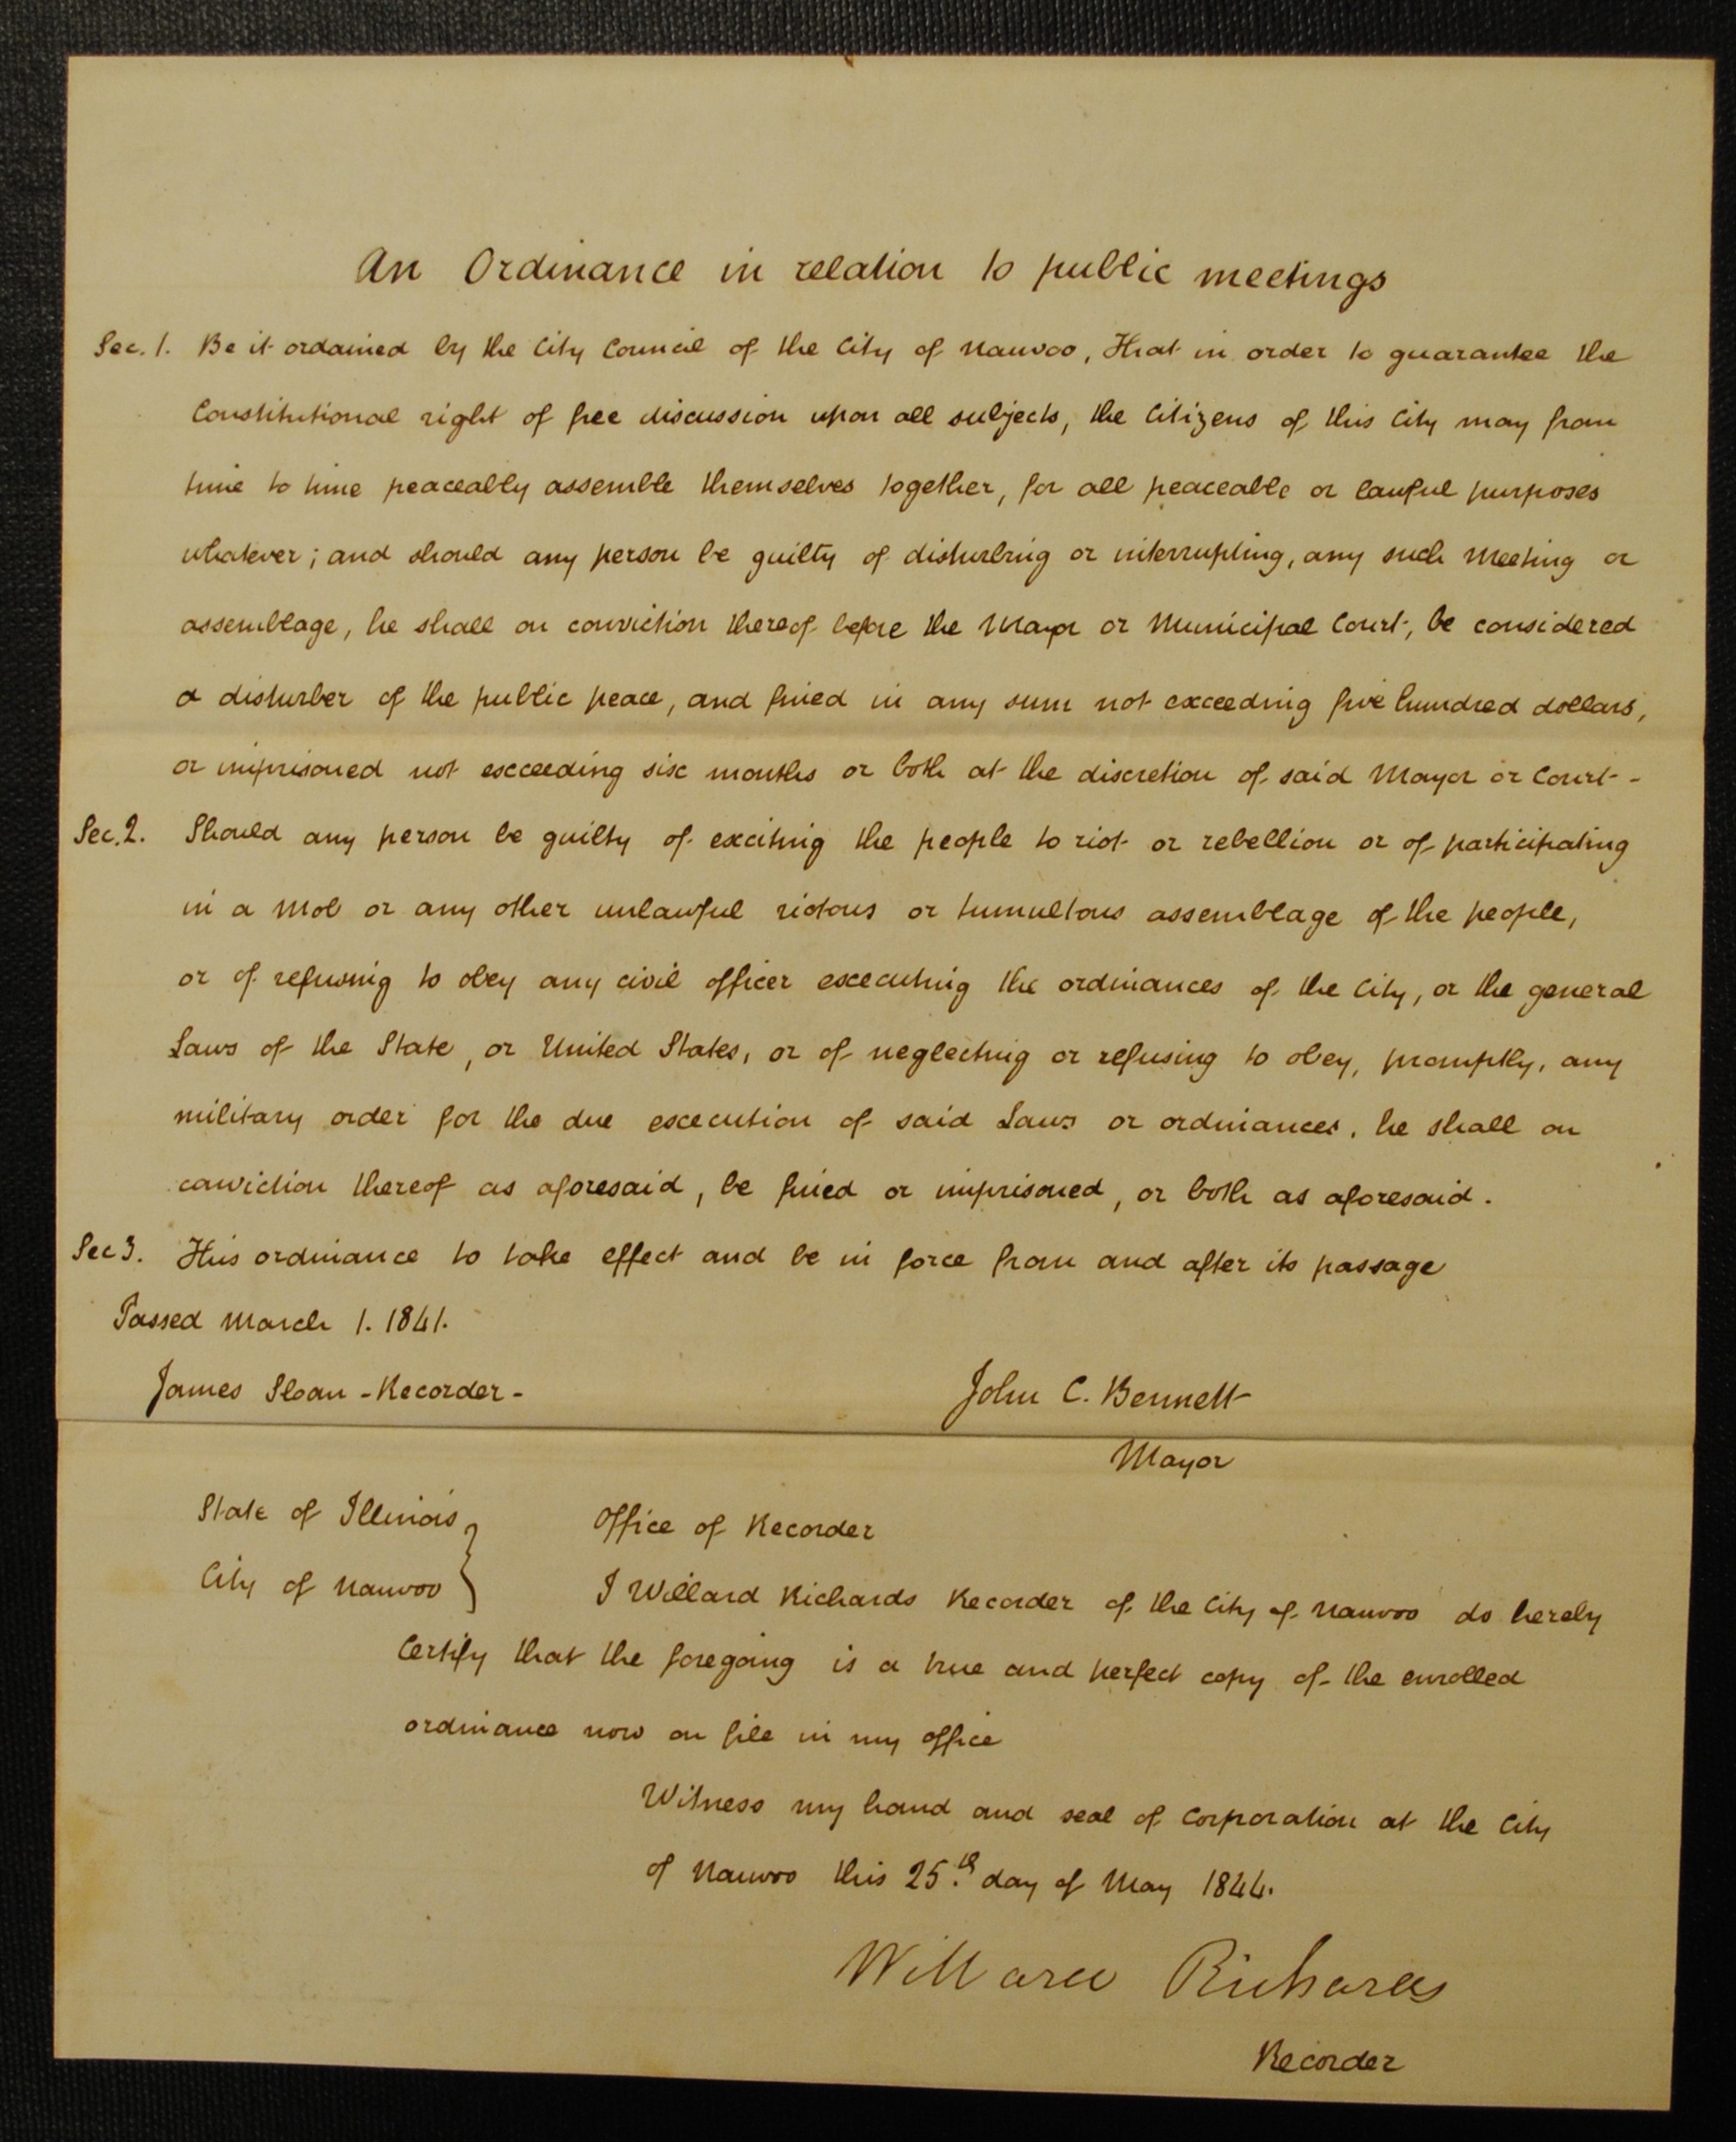 An Ordinance in relation to public meetings
Sec. 1. Be it ordained by the City Council of the City of Nauvoo, That in order to guarantee the
Constitutional right of free discussion upon all subjects, the Citizens of this City may from
time to time peaceably assemble themselves together, for all peaceable or lawful purposes
whatever; and should any person be guilty of disturbing or interrupting, any such Meeting or
assemblage, he shall on conviction thereof before the Mayor or Municipal Court, be considered
a disturber of the public peace, and fined in any sum not exceeding five hundred dollars,
or imprisoned not exceeding six months or both at the discretion of said Mayor or Court--
Sec. 2. Should any person be guilty of exciting the people to riot or rebellion or of participating
in a Mob or any other unlawful riotous or tumultous assemblage of the people,
or of refusing to obey any civil officer executing the ordinances of the City, or the general
Laws of the State, or United States, or of neglecting or refusing to obey, promptly, any
military order for the due execution of said Laws or ordinances, he shall on
conviction thereof as aforesaid, be fined or imprisoned, or both as aforesaid.
Sec 3. This ordinance to take effect and be in force from and after its passage
Passed March 1. 1841.
James Sloan - Recorder -
John C. Bennett
Mayor
State of Illinois
City of Nauvoo }
Office of Recorder
I Willard Richards Recorder of the City of Nauvoo do hereby
Certify that the foregoing is a true and perfect copy of the enrolled
ordinance now on file in my office
Witness my hand and seal of Corporation at the City
of Nauvoo this 25.th day of May 1844.
Willard Richards
Recorder